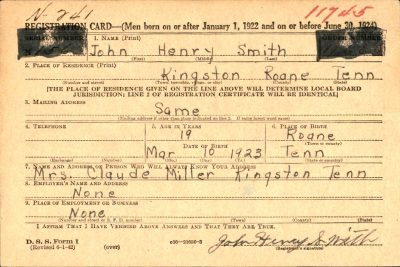 N. 241 11745
REGISTRATION CARD—(Men born on or after January 1, 1922 and on or before June 30, 1924)
SERIAL NUMBER 1. NAME (Print) ORDER NUMBER
John Henry Smith
(First) (Middle) (Last)
2. PLACE OF RESIDENCE (Print)
Kingston Roane Tenn
(Number and street) (Town, township, village, or city) (County) (State)
[THE PLACE OF RESIDENCE GIVEN ON THE LINE ABOVE WILL DETERMINE LOCAL BOARD
JURISDICTION; LINE 2 OF REGISTRATION CERTIFICATE WILL BE IDENTICAL]
3. MAILING ADDRESS
Same
[Mailing address if other than place indicated on line 2. If same insert word same]
4. TELEPHONE 5. AGE IN YEARS 6. PLACE OF BIRTH
19 Roane
DATE OF BIRTH (Town or county)
Mar 10 1923 Tenn
(Exchange) (Number) (Mo.) (Day) (Yr.) (State or country)
7. NAME AND ADDRESS OF PERSON WHO WILL ALWAYS KNOW YOUR ADDRESS
Mrs. Claude Miller Kingston Tenn
8. EMPLOYER'S NAME AND ADDRESS
None
9. PLACE OF EMPLOYMENT OR BUSINESS
None
(Number and street or R. F. D. number) (Town) (County) (State)
I AFFIRM THAT I HAVE VERIFIED ABOVE ANSWERS AND THAT THEY ARE TRUE.
D. S. S. Form 1
(Revised 6-1-42) (over) John Henry Smith
(Registrant's signature)